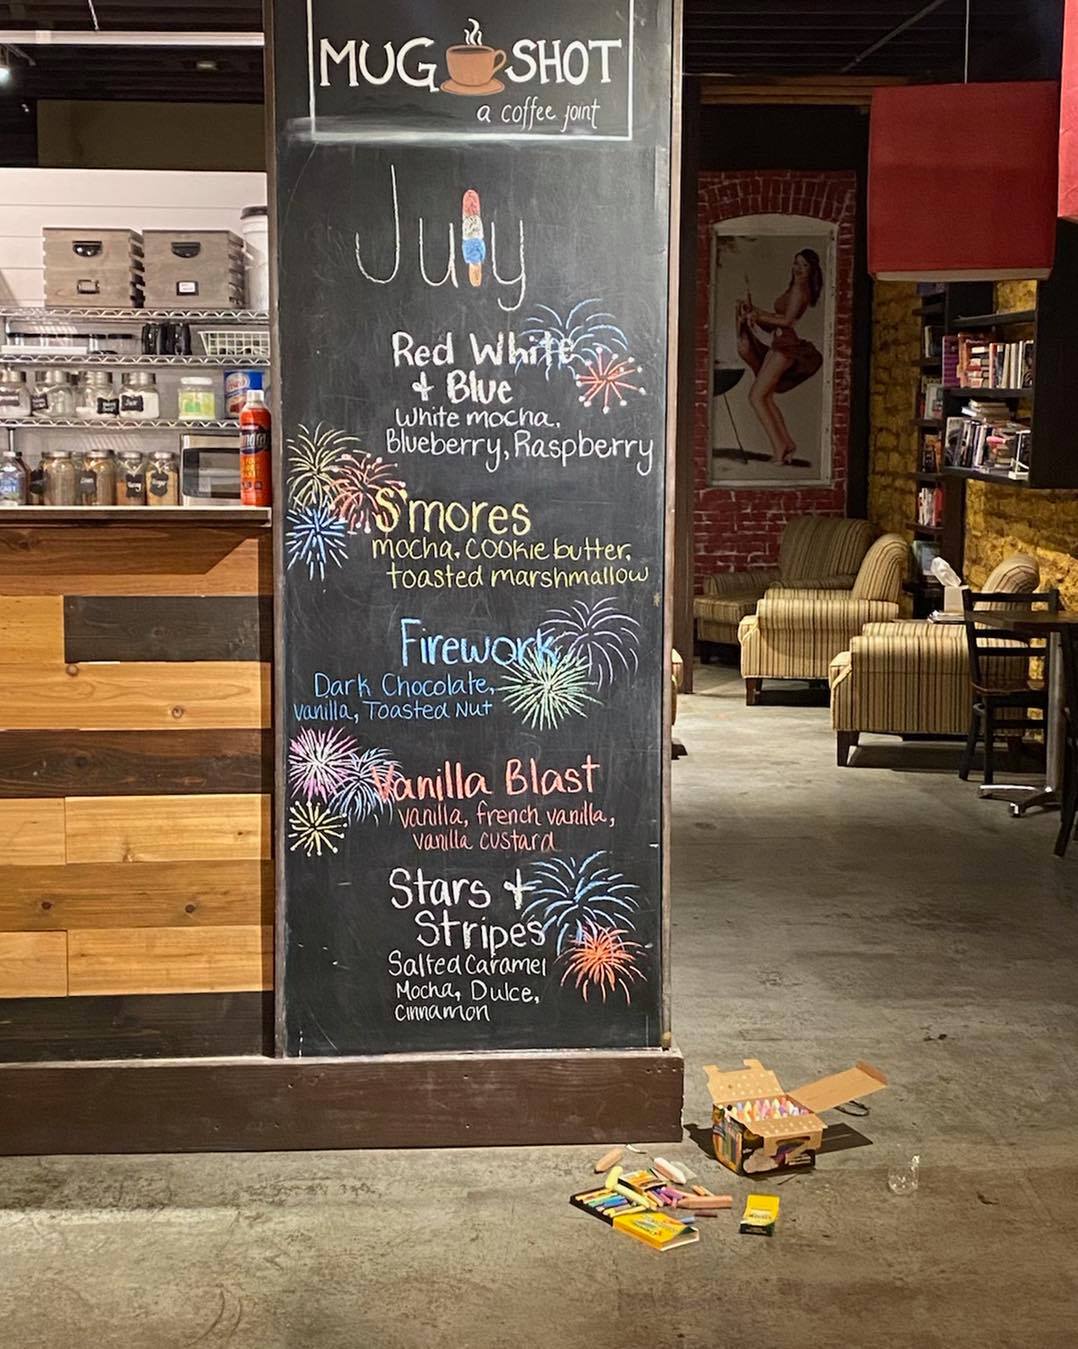 MUG SHOT
a coffee joint
July
Red White
+ Blue
White mocha,
Blueberry, Raspberry
S'mores
mocha, cookie butter,
toasted marshmallow
Firework
Dark Chocolate,
Vanilla, Toasted Nut
Vanilla Blast
Vanilla, french vanilla,
vanilla custard
Stars +
Stripes
Salted Caramel
Mocha, Dulce,
cinnamon